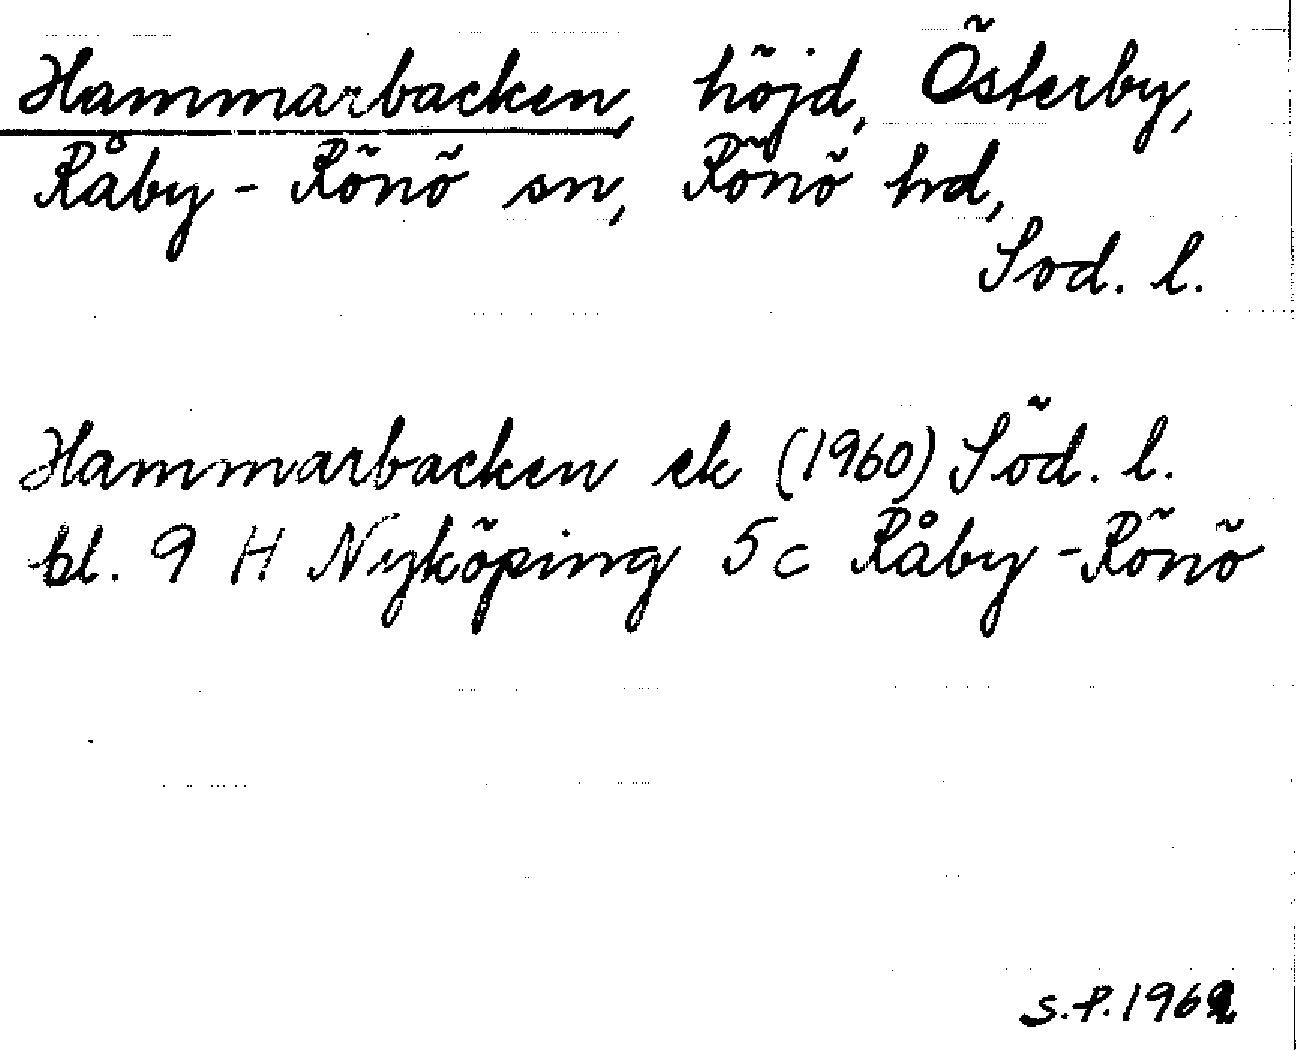 Hammarbacken, höjd, Österby,
Råby-Rönö sn, Rönö hd,
Sod. l.
Hammarbacken ek (1960) Söd. l.
bl. 9 H Nyköping 5c Råby-Rönö
S.P.1962